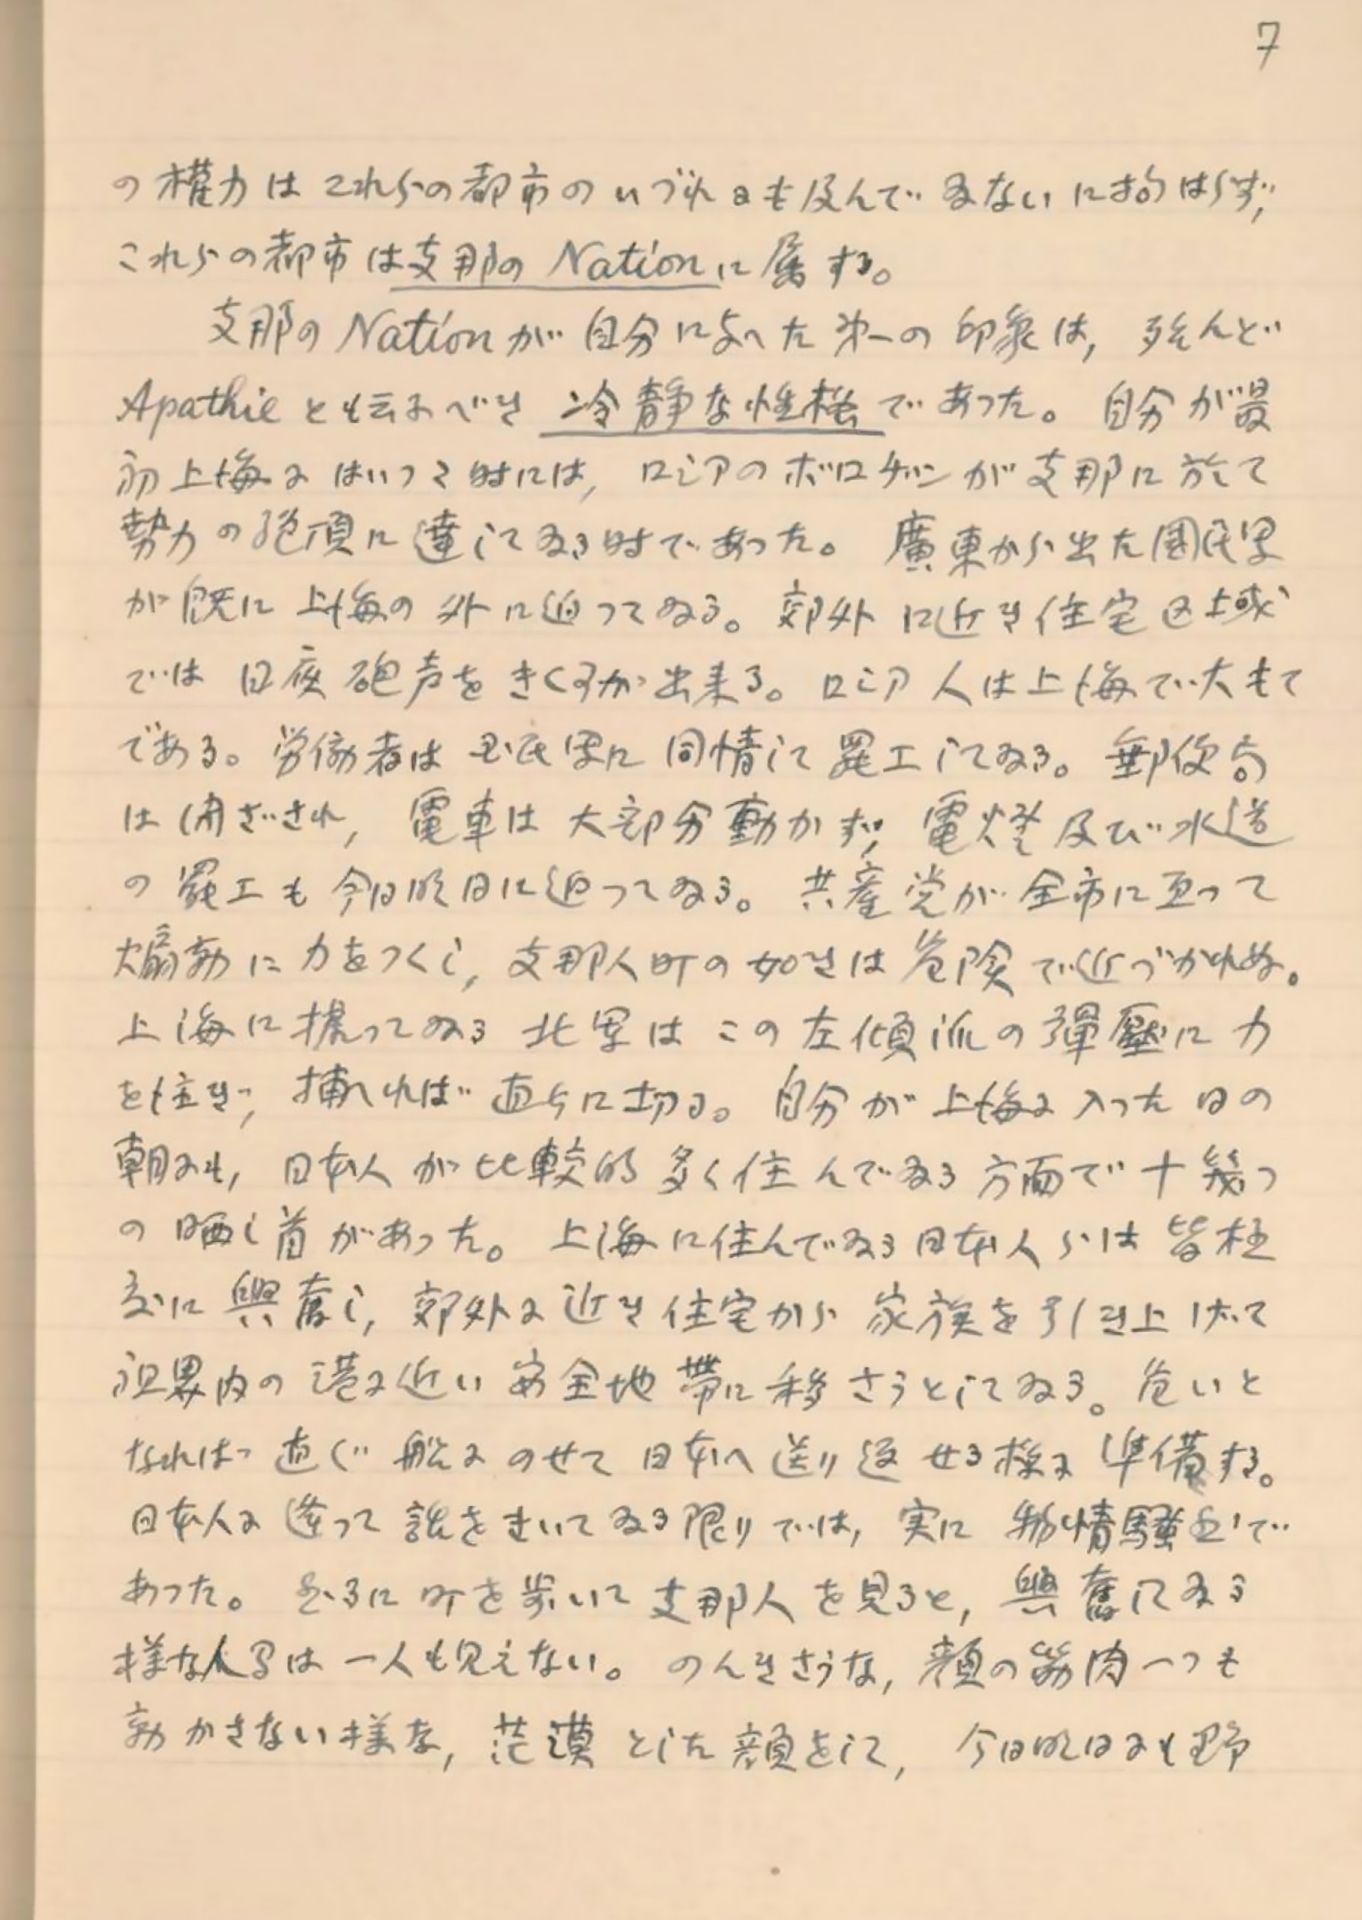 7
の權力はこれらの都市のいづれにも及んでゐないに拘はらず,
これらの都市は支那の Nation に属する。
支那の Nation が自分に与へた第一の印象は, 殆んど
Apathie とも云ふべき 冷静な性格であった。 自分が最
初上海にはいつた時には, ロシアのボロヂンが支那に於て
勢力の絶頂に達してゐる時であった。 廣東から出た國民軍
が既に上海の外に迫つてゐる。 郊外に近き住宅区域
では日夜砲声をきく事が出来る。 ロシア人は上海で大もて
である。 労働者は国民軍に同情して罷工してゐる。 郵便局
は閉ざされ, 電車は大部分動かず, 電燈及び水道
の罷工も今日明日に迫つてゐる。 共産党が全市に亙って
煽動に力をつくし, 支那人町の如きは危険で近づかれぬ。
上海に據ってゐる北軍はこの左傾派の彈壓に力
を注ぎ, 捕へれば直ちに切る。 自分が上海に入った日の
朝にも, 日本人が比較的多く住んでゐる方面で十幾つ
の晒し首があった。 上海に住んでゐる日本人らは皆極
度に興奮し, 郊外に近き住宅から家族を引き上げて
租界内の港に近い安全地帯に移さうとしてゐる。 危いと
なれば直ぐ船にのせて日本へ送り返せる様に準備する。
日本人に逢って話をきいてゐる限りでは, 実に物情騒然で
あった。 然るに町を歩いて支那人を見ると, 興奮してゐる
様な人間は一人も見えない。 のんきさうな, 顔の筋肉一つも
動かさない様な, 茫漠とした顔をして, 今日明日にも野